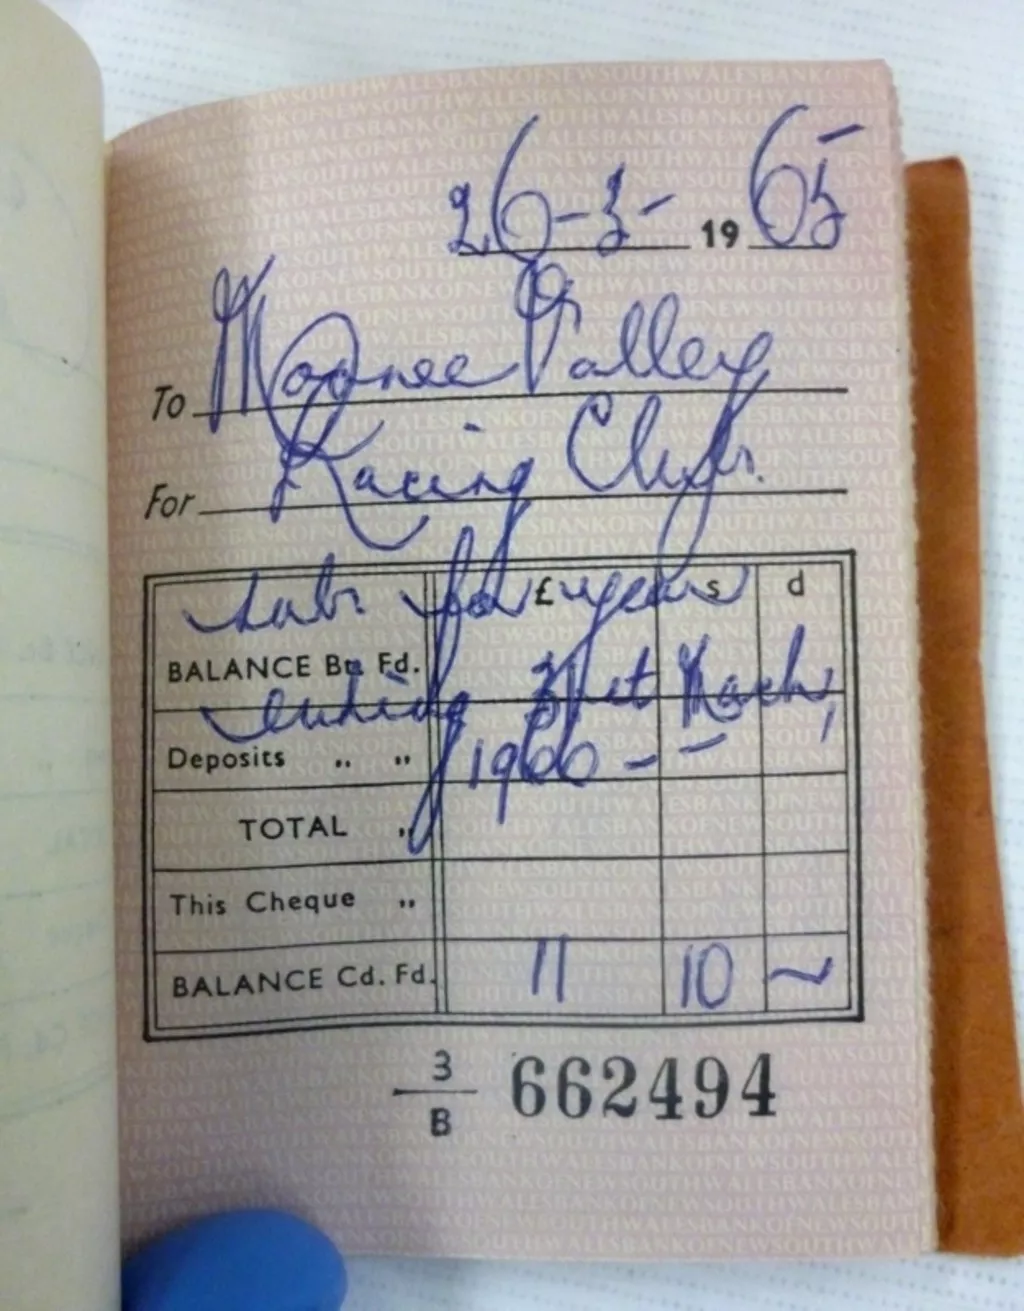 26-3- 19 65
To Moonee Valley
For Racing Club.
subs. for year
£ s d
BALANCE Br. Fd.
ending 31st March,
Deposits " "
1966 - -
TOTAL "
This Cheque "
BALANCE Cd. Fd. 11 10 ~
3/B 662494